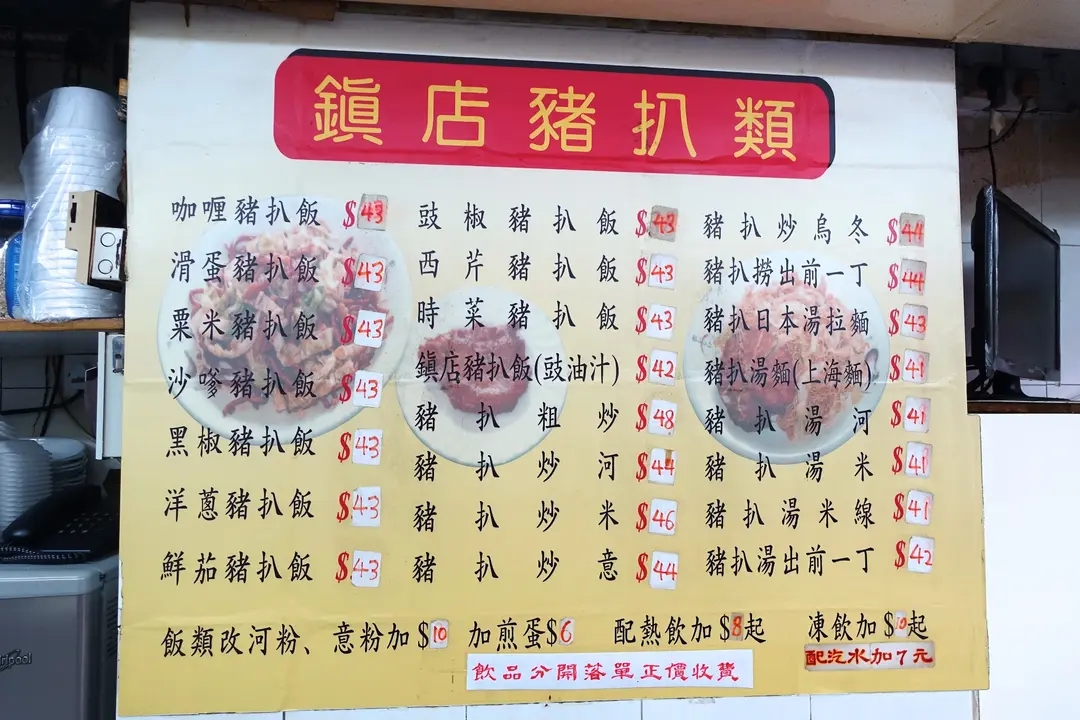 鎮店豬扒類
咖喱豬扒飯 $43
滑蛋豬扒飯 $43
粟米豬扒飯 $43
沙嗲豬扒飯 $43
黑椒豬扒飯 $43
洋蔥豬扒飯 $43
鮮茄豬扒飯 $43
豉椒豬扒飯 $43
西芹豬扒飯 $43
時菜豬扒飯 $43
鎮店豬扒飯(豉油汁) $42
豬扒粗炒 $48
豬扒炒河 $44
豬扒炒米 $46
豬扒炒意 $44
豬扒炒烏冬 $44
豬扒撈出前一丁 $44
豬扒日本湯拉麵 $43
豬扒湯麵(上海麵) $41
豬扒湯河 $41
豬扒湯米 $41
豬扒湯米線 $41
豬扒湯出前一丁 $42
飯類改河粉、意粉加$10 加煎蛋$6 配熱飲加$8起 凍飲加$10起
配汽水加7元
飲品分開落單正價收費